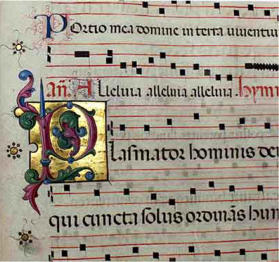 Portio mea domine in terra uiuentiu
an̄. Alleluia alleluia alleluia.
Plasmator hominis
qui cuncta solus ordinās